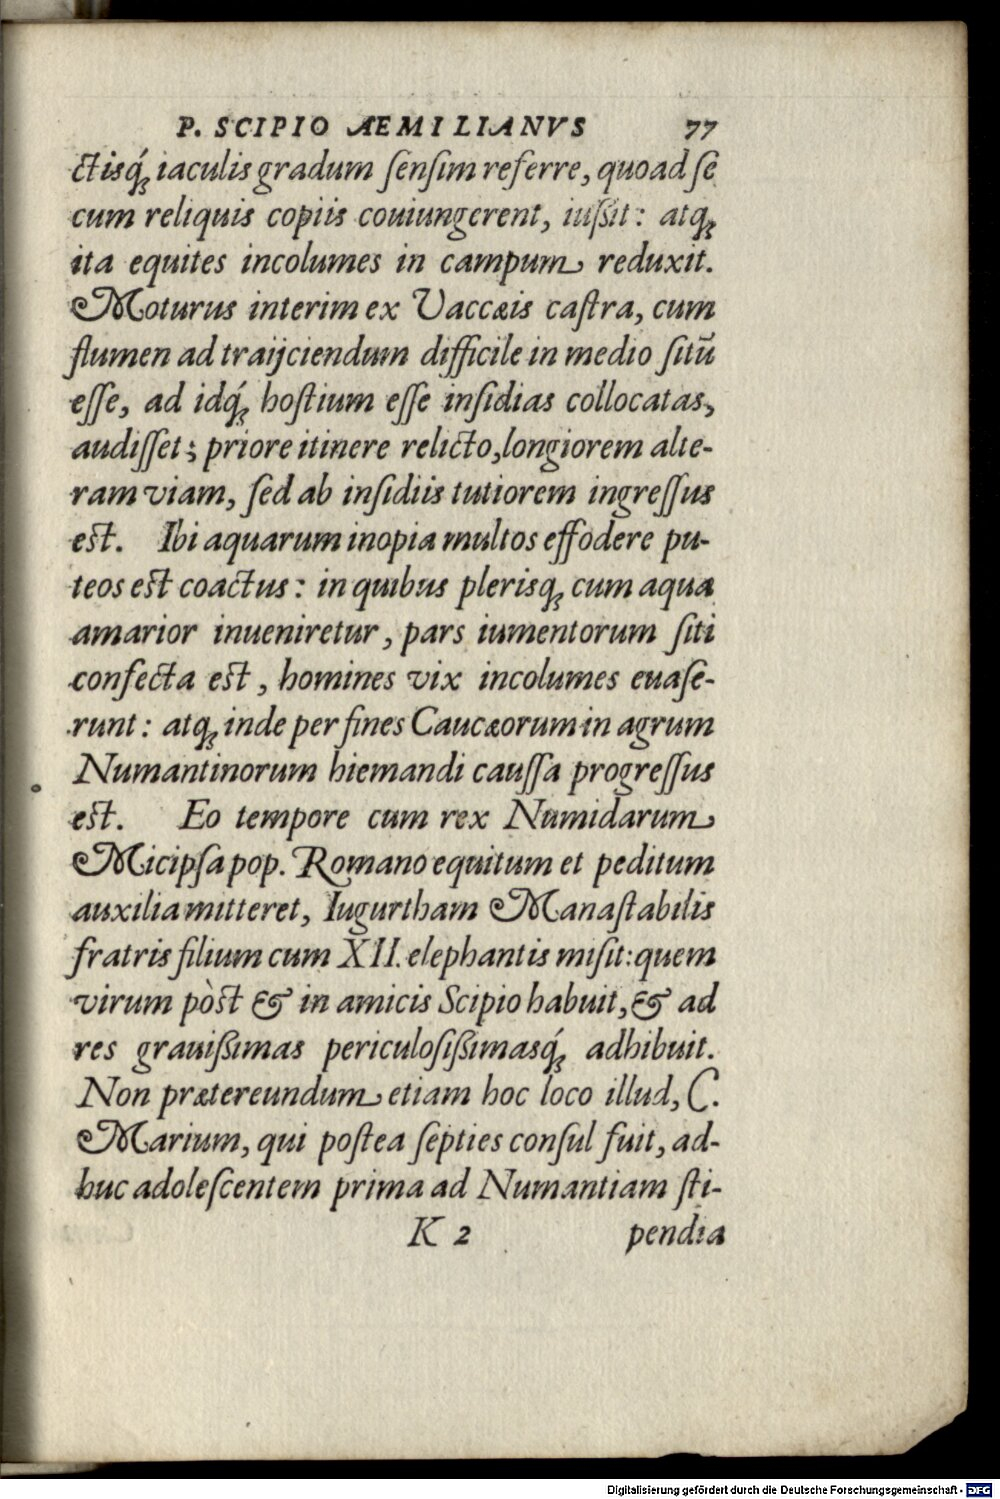 P. SCIPIO AEMILIANVS 77
ctisq́; iaculis gradum ſenſim referre, quoad ſe
cum reliquis copiis couiungerent, iuſsit: atq;
ita equites incolumes in campum reduxit.
Moturus interim ex Vaccæis caſtra, cum
flumen ad traijciendum difficile in medio ſitū
eſſe, ad idq́; hoſtium eſſe inſidias collocatas,
audiſſet; priore itinere relicto, longiorem alte-
ram viam, ſed ab inſidiis tutiorem ingreſſus
eſt. Ibi aquarum inopia multos effodere pu-
teos eſt coactus: in quibus plerisq; cum aqua
amarior inueniretur, pars iumentorum ſiti
confecta eſt, homines vix incolumes euaſe-
runt: atq; inde per fines Caucæorum in agrum
Numantinorum hiemandi cauſſa progreſſus
eſt. Eo tempore cum rex Numidarum
Micipſa pop. Romano equitum et peditum
auxilia mitteret, Iugurtham Manaſtabilis
fratris filium cum XII. elephantis miſit: quem
virum pòſt & in amicis Scipio habuit, & ad
res grauiſsimas periculoſiſsimasq́; adhibuit.
Non prætereundum etiam hoc loco illud, C.
Marium, qui poſtea ſepties conſul fuit, ad-
huc adoleſcentem prima ad Numantiam ſti-
K 2 pendia
Digitalisierung gefördert durch die Deutsche Forschungsgemeinschaft - DFG